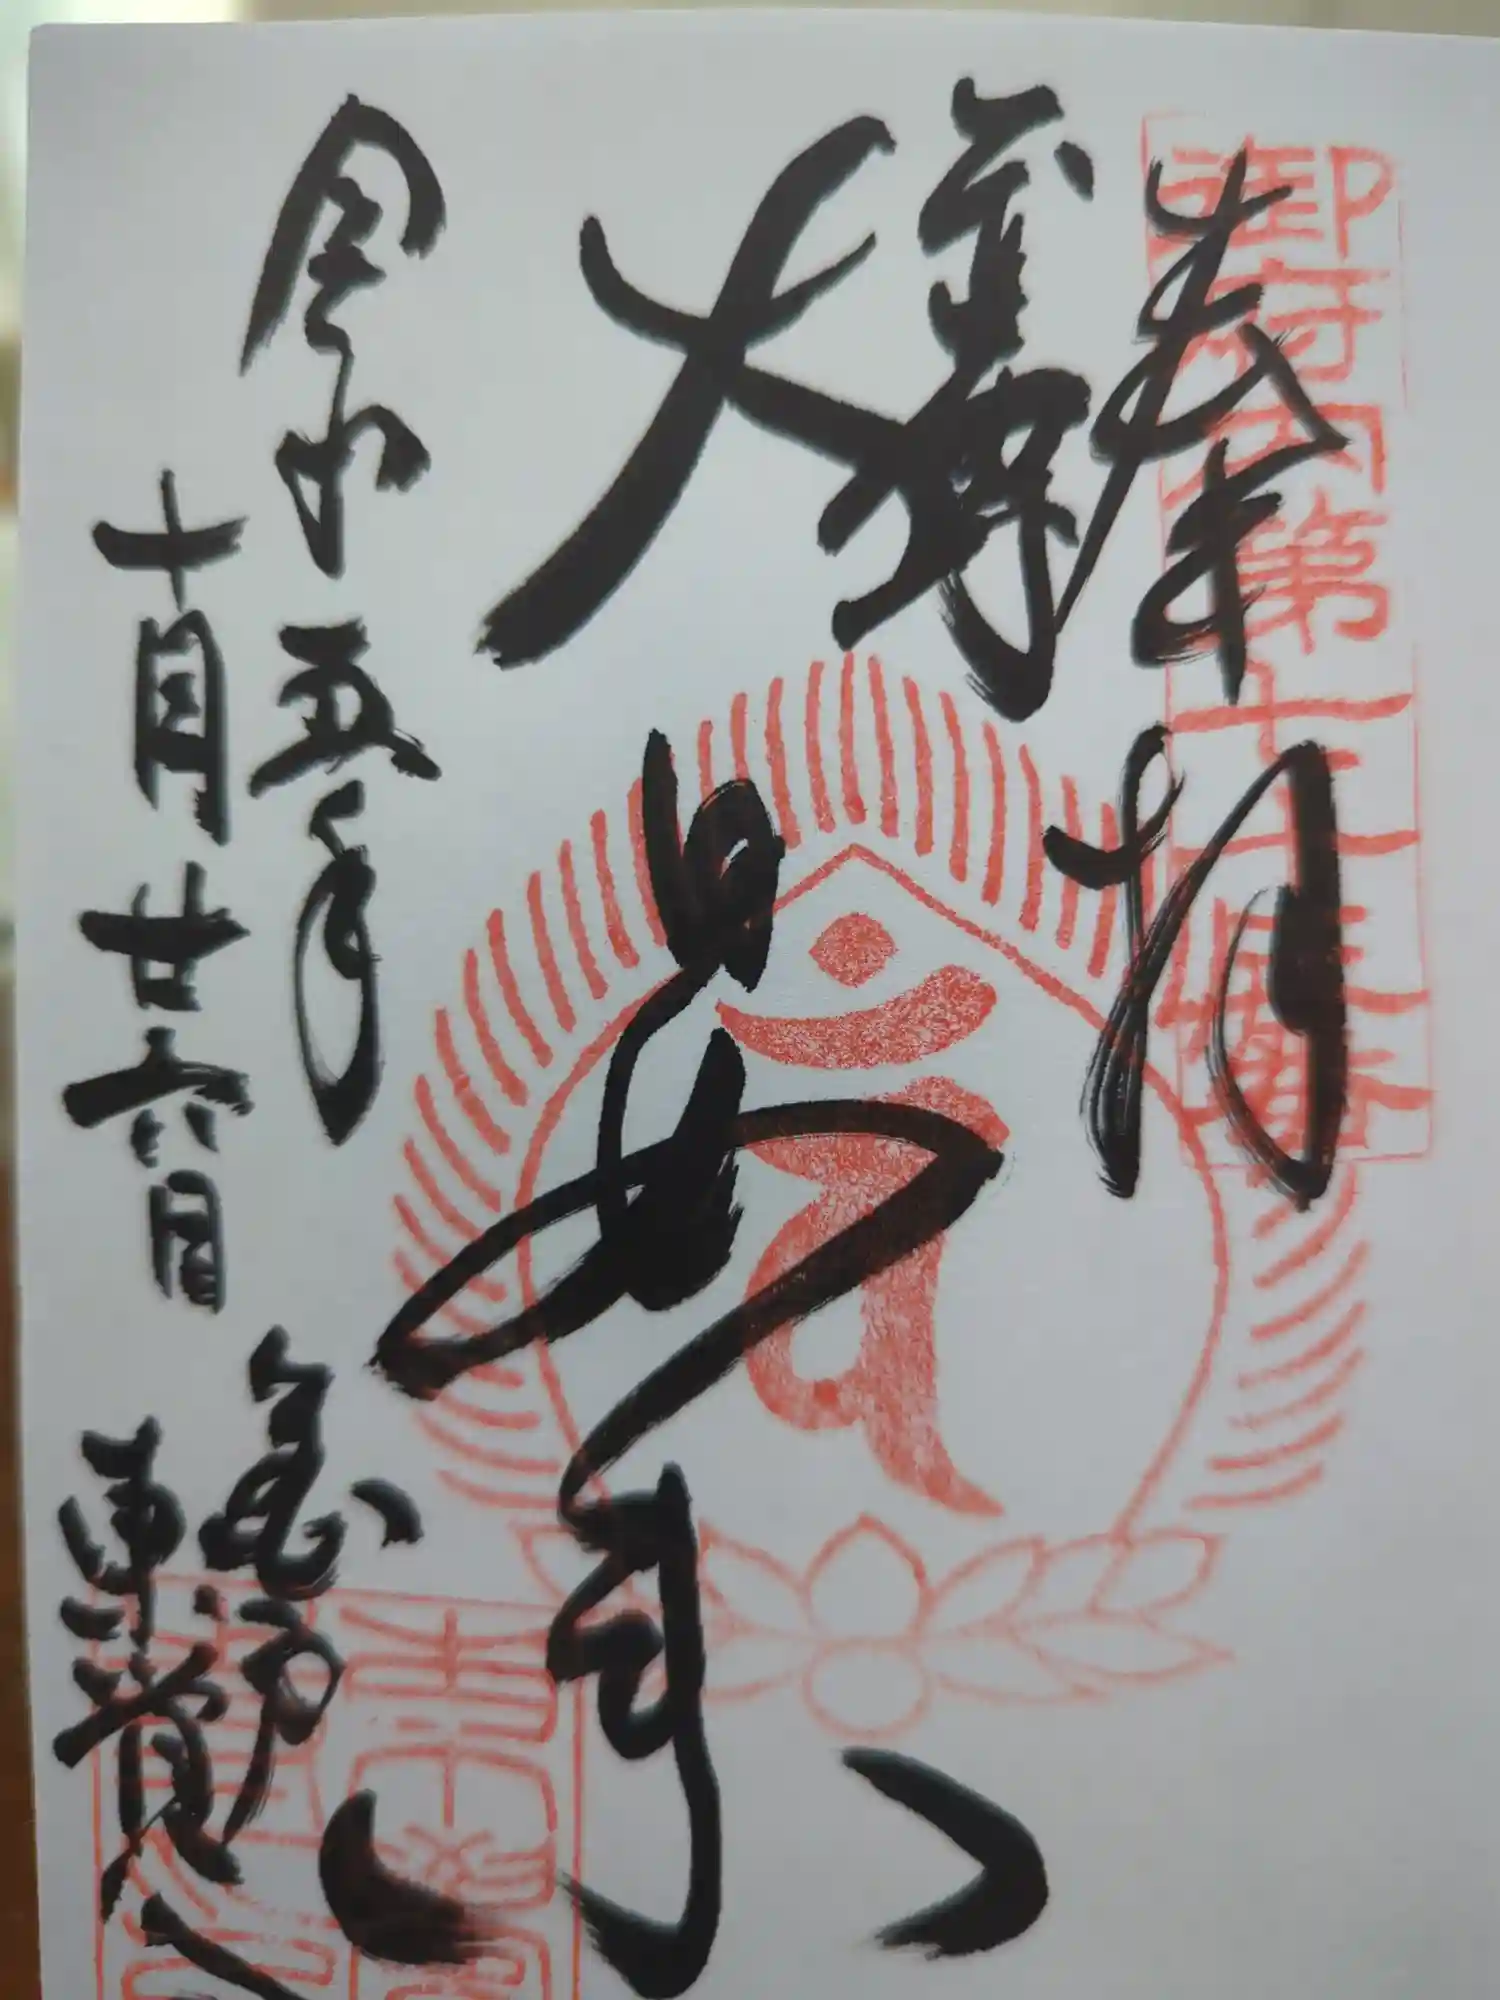 御府内第七十三番
奉拝
大日如来
令和五年
十月廿六日
亀戸
東覚寺